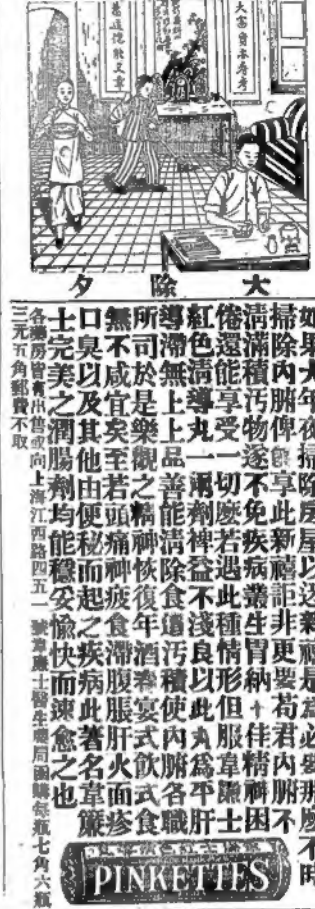 大富貴亦壽考
大除夕
如果大年夜掃除房屋以迓新禧是為必要那麼不時
掃除內腑俾能享此新禧詎非更要苟君內腑不
清滿積汚物遂不免疾病叢生胃納十佳精神困
倦還能享受一切麼若遇此種情形但服韋廉士
紅色清導丸一瀉劑裨益不淺良以此丸為平肝
導滯無上上品善能清除食道汚積使內腑各職
所司於是樂觀之精神恢復年酒春宴式飲式食
無不咸宜矣至若頭痛神疲食滯腹脹肝火面疹
口臭以及其他由便秘而起之疾病此著名韋廉
士完美之潤腸劑均能穩妥愉快而速愈之也
各藥房皆有出售或向上海江西路四五一號韋廉士醫生藥局函購每瓶七角六瓶
三元五角郵費不取
PINKETTES